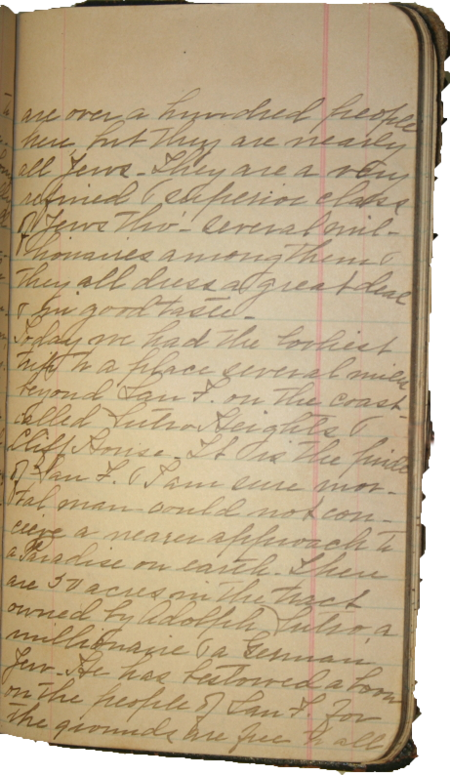 are over a hundred people
here but they are nearly
all Jews - They are a very
refined & superior class
of Jews tho' - several mil-
lionaires among them &
they all dress a great deal
& in good taste -
Today we had the loveliest
trip to a place several miles
beyond San F. on the coast
called Sutro Heights &
Cliff House - It is the pride
of San F. & I am sure mor-
tal man could not con-
ceive a nearer approach to
a Paradise on earth. There
are 30 acres in the tract
owned by Adolph Sutro, a
millionaire & a German
Jew - He has bestowed a boon
on the people of San F. for
the grounds are free to all